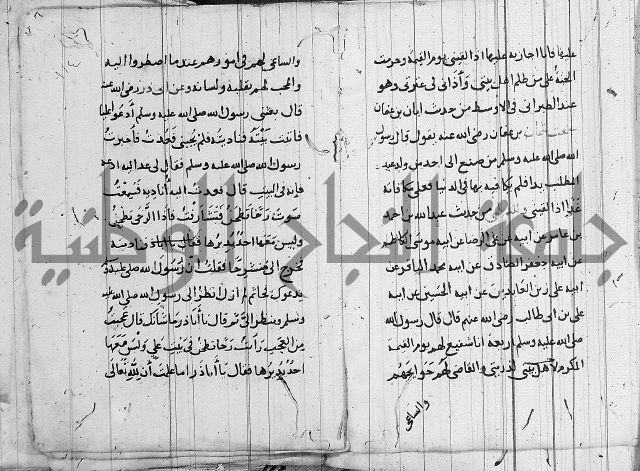 عليها فانا اجازيه عليها اذا لقيني يوم القيمة وحرمت
الجنة على من ظلم اهل بيتي وآذاني في عترتي وهو
عند الطبراني في الاوسط من حديث ابان بن عثمان
بن عفان رضي الله عنه يقول قال رسول
الله صلى الله عليه وسلم من صنع الى احد من ولد عبد
المطلب يدا فلم يكافيه بها في الدنيا فعلي مكافاته
غدا اذا لقيني من حديث عبد الله بن احمد
بن عامر عن ابيه عن علي الرضا عن ابيه موسى الكاظم
عن ابيه جعفر الصادق عن ابيه محمد الباقر عن
ابيه علي زين العابدين عن ابيه الحسين عن ابيه
علي بن ابي طالب رضي الله عنهم قال قال رسول الله
صلى الله عليه وسلم اربعة انا شفيع لهم يوم القيمة
المكرم لاهل بيتي لذريتي والقاضي لهم حوايجهم
والساعي
والساعي لهم في امورهم عندما اضطروا اليه
والمحب لهم بقلبه ولسانه وعن ابي ذر رضي الله عنه
قال بعثني رسول الله صلى الله عليه وسلم ادعو عليا
فاتيت بيته فناديته فلم يجبني فعدت فاخبرت
رسول الله صلى الله عليه وسلم فقال لي عد اليه ادعه
فانه في البيت قال فعدت اليه اناديه فسمعت
صوت رحا تطحن فتشارفت فاذا الرحى تطحن
وليس معها احد يديرها فناديته
فخرج الي منشرحا فقلت ان رسول الله صلى الله عليه وسلم
يدعوك فجا ثم لم ازل انظر الى رسول الله صلى الله عليه
وسلم وينظر الي ثم قال يا اباذر ما شانك قال عجبت
من العجب رايت رحا تطحن في بيت علي وليس معها
احد يديرها فقال يا اباذر اما علمت ان لله تعالى
جامعة النجاح الوطنية